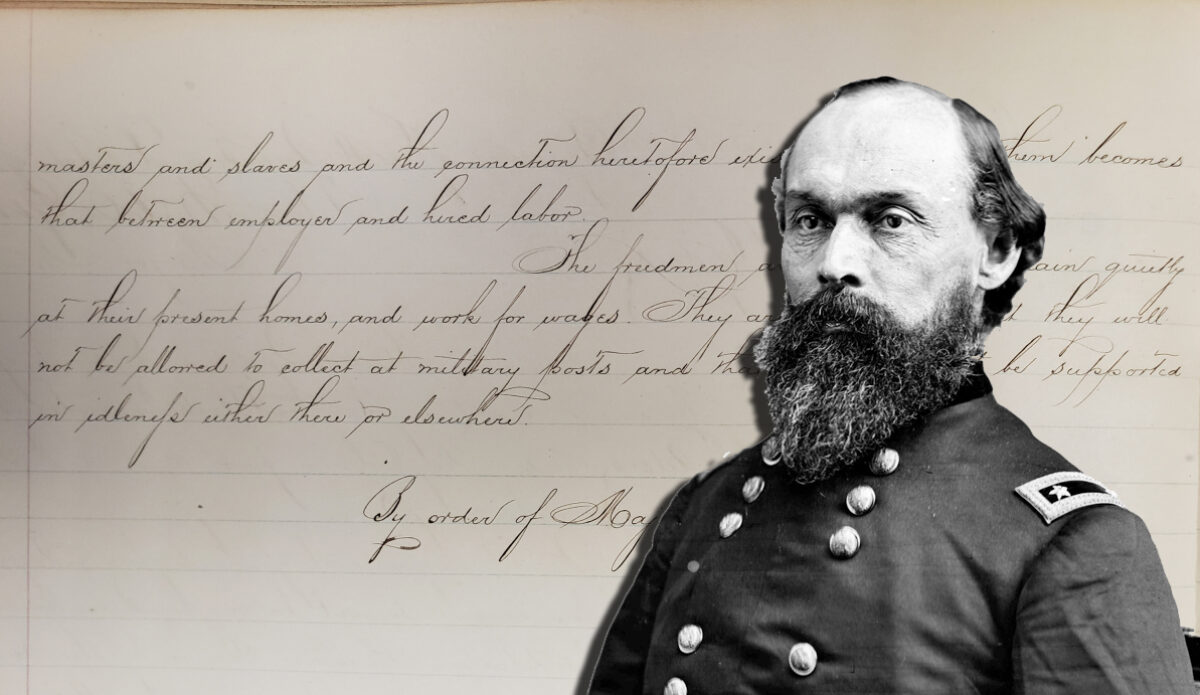 masters and slaves and the connection heretofore exis them becomes
that between employer and hired labor.
The freedmen a ain quietly
at their present homes, and work for wages. They ar d they will
not be allowed to collect at military posts and tha t be supported
in idleness either there or elsewhere.
By order of Maj